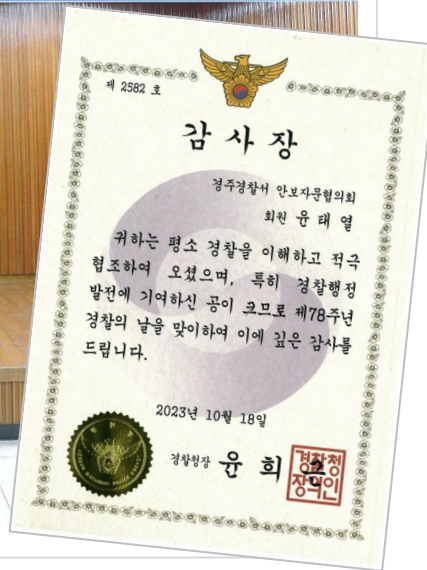 제 2582 호
감사장
경주경찰서 안보자문협의회
회원 윤태열
귀하는 평소 경찰을 이해하고 적극
협조하여 오셨으며, 특히 경찰행정
발전에 기여하신 공이 크므로 제78주년
경찰의 날을 맞이하여 이에 깊은 감사를
드립니다.
2023년 10월 18일
경찰청장 윤희
경찰청
장의인